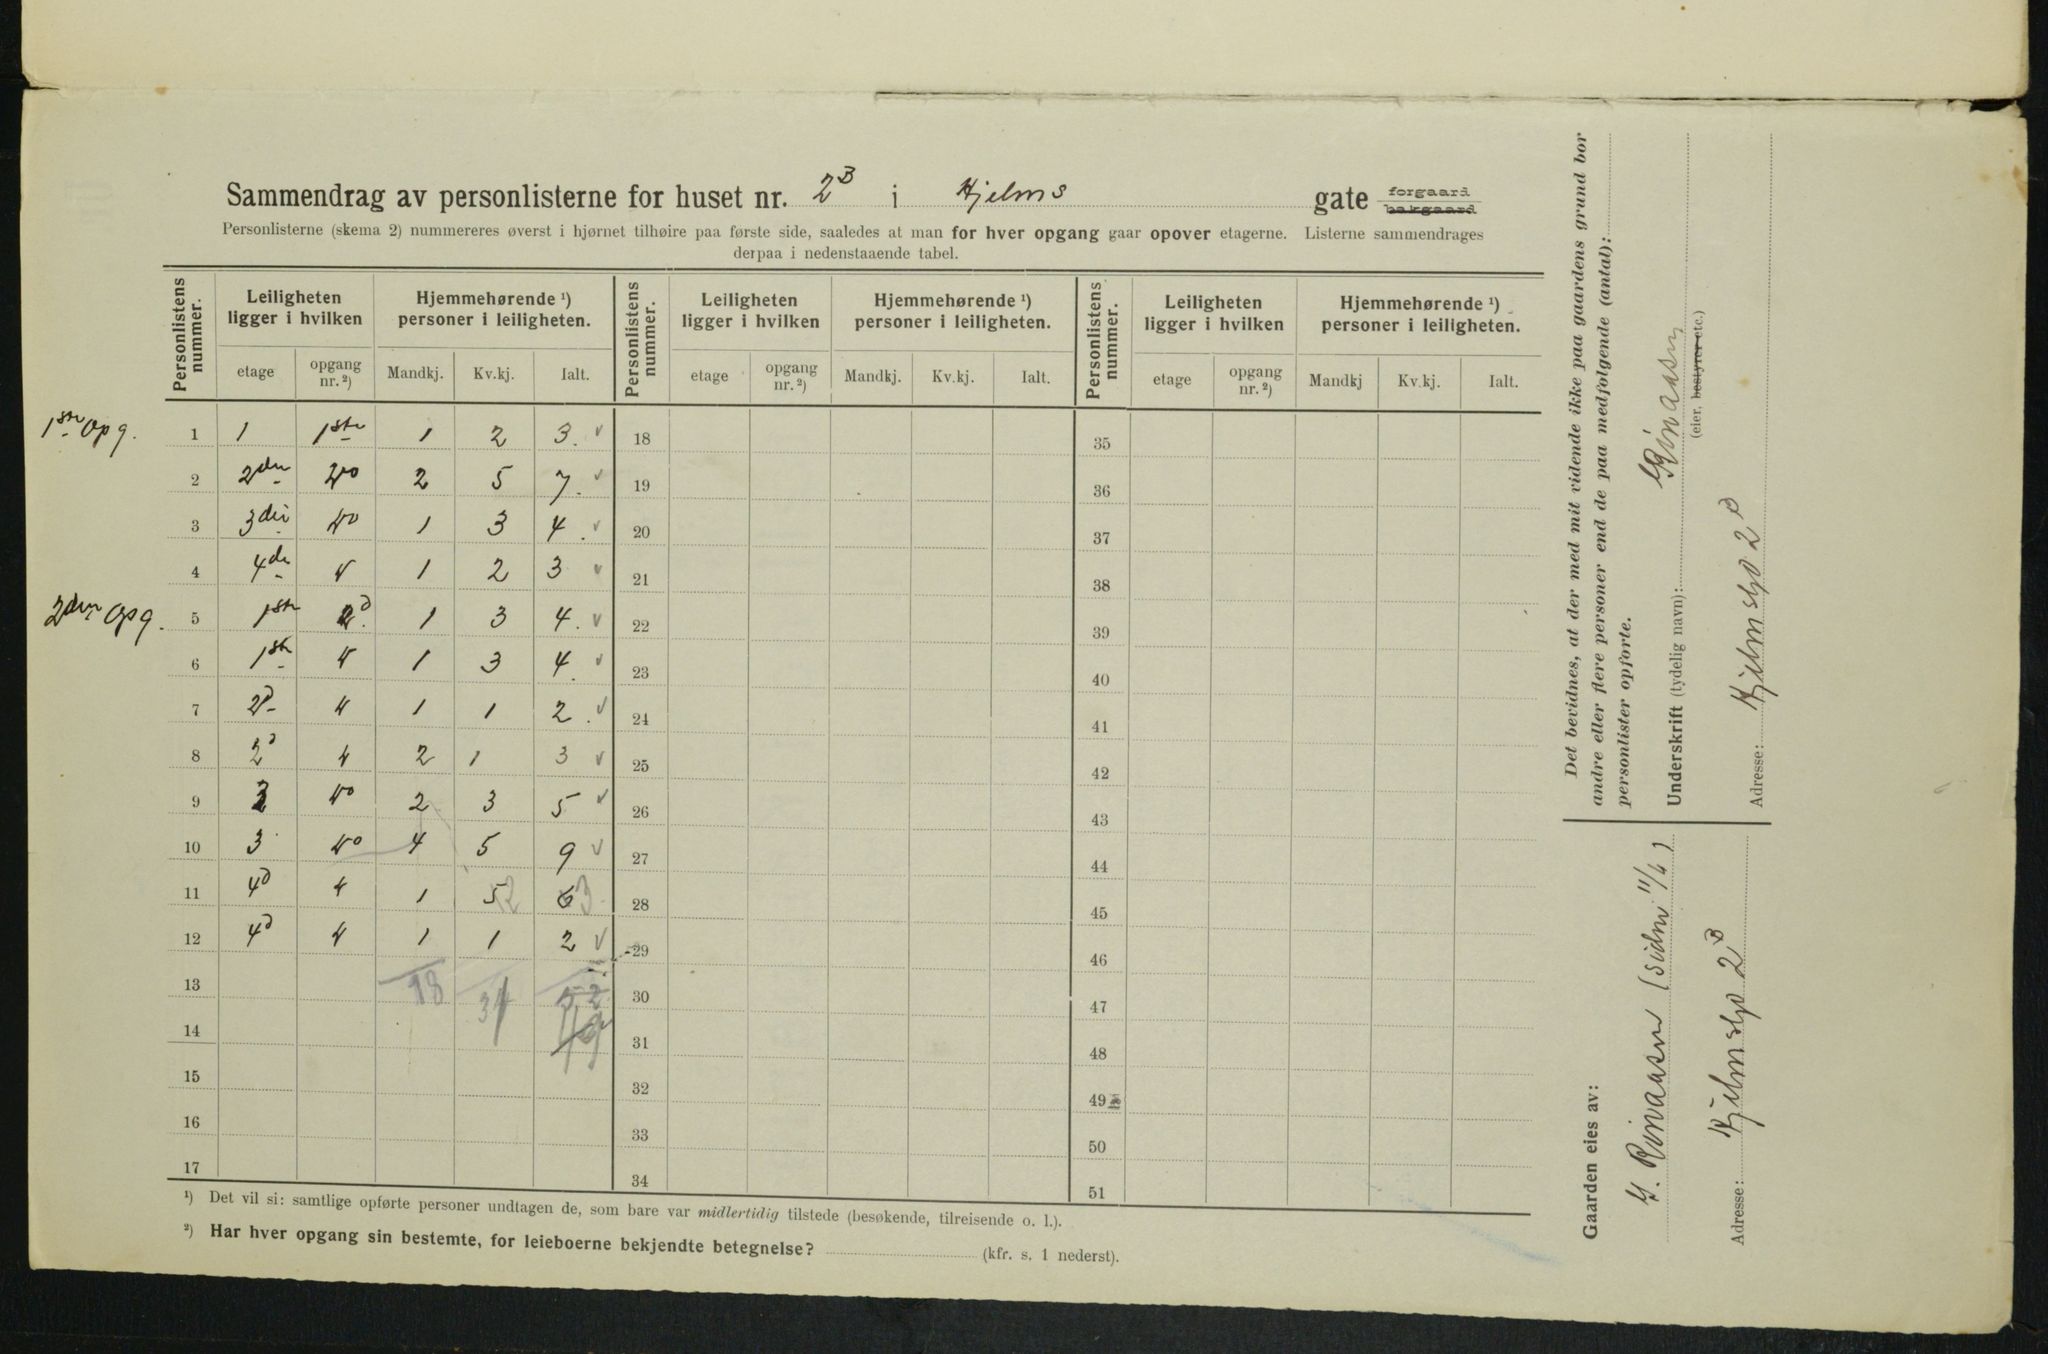 Sammendrag av personlisterne for huset nr. 2B i Hjelms gate forgaard bakgaard
Personlisterne (skema 2) nummereres øverst i hjørnet tilhøire paa første side, saaledes at man for hver opgang gaar opover etagerne. Listerne sammendrages
derpaa i nedenstaaende tabel.
Personlistens nummer. Leiligheten ligger i hvilken Hjemmehørende ¹) personer i leiligheten. Personlistens nummer. Leiligheten ligger i hvilken Hjemmehørende ¹) personer i leiligheten. Personlistens nummer. Leiligheten ligger i hvilken Hjemmehørende ¹) personer i leiligheten.
etage opgang nr. ²) Mandkj. Kv.kj. Ialt. etage opgang nr. ²) Mandkj. Kv.kj. Ialt. etage opgang nr. ²) Mandkj Kv.kj. Ialt.
1ste Opg. 1 1 1ste 1 2 3. 18 35
2 2den do 2 5 7. 19 36
3 3die do 1 3 4. 20 37
4 4de 1 2 3 21 38
2den Opg. 5 1ste 2d. 1 3 4. 22 39
6 1ste 1 3 4. 23 40
7 2d 1 1 2. 24 41
8 2d 2 1 3 25 42
9 3 do 2 3 5 26 43
10 3 do 4 5 9 27 44
11 4d 1 5 2 6 3 28 45
12 4d 1 1 2 29 46
13 18 34 52 30 47
14 49 31 48
15 32 49
16 33 50
17 34 51
¹) Det vil si: samtlige opførte personer undtagen de, som bare var midlertidig tilstede (besøkende, tilreisende o. l.).
²) Har hver opgang sin bestemte, for leieboerne bekjendte betegnelse? (kfr. s. 1 nederst).
Det bevidnes, at der med mit vidende ikke paa gaardens grund bor
andre eller flere personer end de paa medfølgende (antal):
personlister opførte.
Underskrift (tydelig navn):
(eier, bestyrer etc.)
Adresse: Hjelmsgt 2B
Gaarden eies av:
(siden 11/4)
Adresse: Hjelmsgt 2B